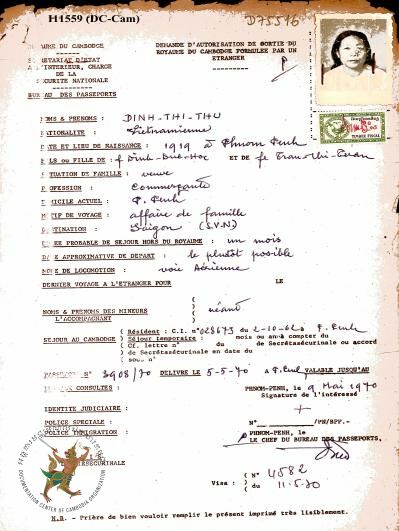 H1559 (DC-Cam)
D75516
DU CAMBODGE
DEMANDE D'AUTORISATION DE SORTIE DU
ROYAUME DU CAMBODGE FORMULEE PAR UN
ETRANGER
D'ETAT
CHARGE
DE LA
SECURITE NATIONALE
BUREAU DES PASSEPORTS
NOMS & PRENOMS : DINH-THI-THU
NATIONALITE : Vietnamienne
DATE ET LIEU DE NAISSANCE : 1919 à Phnom Penh
FILS ou FILLE DE : ET de
SITUATION DE FAMILLE : veuve
PROFESSION : Commerçante
DOMICILE ACTUEL : P. Penh
MOTIF DE VOYAGE : affaire de famille
DESTINATION : Saigon (S.V.N)
DUREE PROBABLE DE SEJOUR HORS DU ROYAUME : un mois
DATE APPROXIMATIVE DE DEPART : le plutôt possible
MODE DE LOCOMOTION : voie Aérienne
DERNIER VOYAGE A L'ETRANGER POUR LE
NOMS & PRENOMS DES MINEURS
L'ACCOMPAGNANT
néant
Résident : C.I. n° 028673 du 2-10-62 P. Penh
SEJOUR AU CAMBODGE Séjour temporaire : mois ou an à compter du
Cf. lettre n° du de Secrétasécurinale ou accord
de Secrétasécurinale en date du
sous n°
PASSEPORT N° 3908/70 DELIVRE LE 5-5-70 A P. Penh VALABLE JUSQU'AU
CONSULTES :
PHNOM-PENH, le 9 Mai 1970
Signature de l'intéressé
IDENTITE JUDICIAIRE :
POLICE SPECIALE :
POLICE IMMIGRATION :
N° /PN/BPP.-
PHNOM-PENH, LE
LE CHEF DU BUREAU DES PASSEPORTS,
N° 4582
Visa : du 11.5.70
DOCUMENTATION CENTER OF CAMBODIA ORGANIZATION
N.B. - Prière de bien vouloir remplir le présent imprimé très lisiblement.